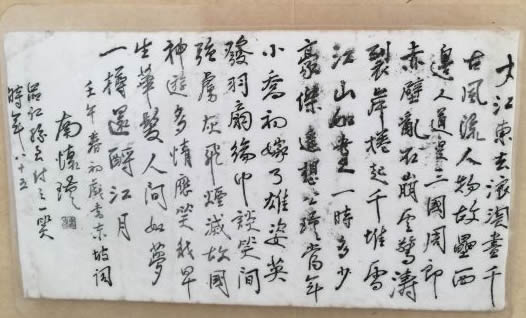 大江東去浪淘盡千
古風流人物故壘西
邊人道是三國周郎
赤壁亂石崩雲驚濤
裂岸捲起千堆雪
江山如畫一時多少
豪傑遙想公瑾當年
小喬初嫁了雄姿英
發羽扇綸巾談笑間
強虜灰飛煙滅故國
神遊多情應笑我早
生華髮人間如夢
一樽還酹江月
壬午春初戲書東坡詞
南懷瑾
一笑
時年八十五